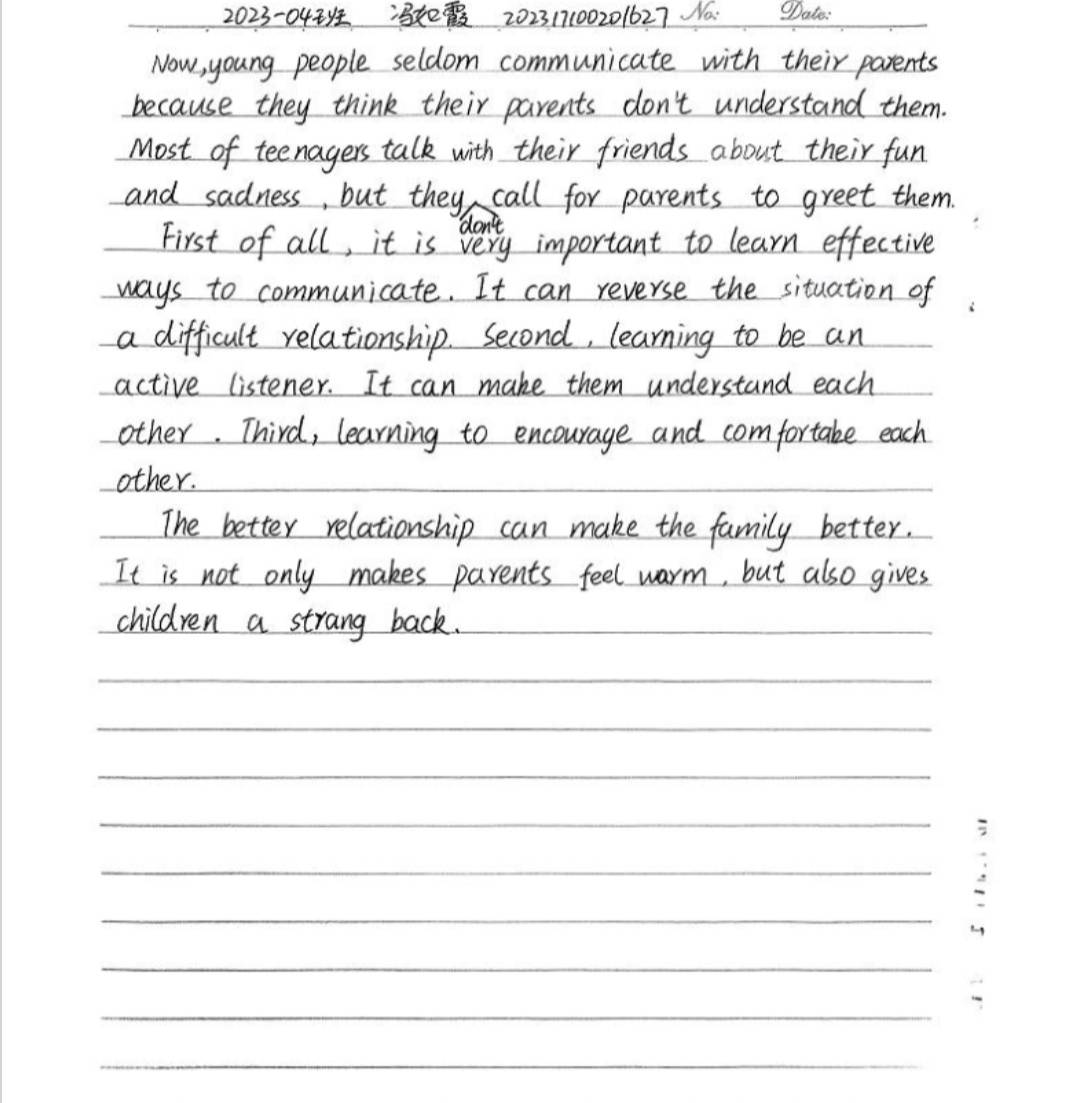 2023-04班 冯如霞 202317100201627 No: Date:
Now,young people seldom communicate with their parents
because they think their parents don't understand them.
Most of teenagers talk with their friends about their fun
and sadness , but they don't call for parents to greet them.
First of all , it is very important to learn effective
ways to communicate. It can reverse the situation of
a difficult relationship. Second , learning to be an
active listener. It can make them understand each
other . Third, learning to encourage and comfortabe each
other.
The better relationship can make the family better.
It is not only makes parents feel warm , but also gives
children a strang back.